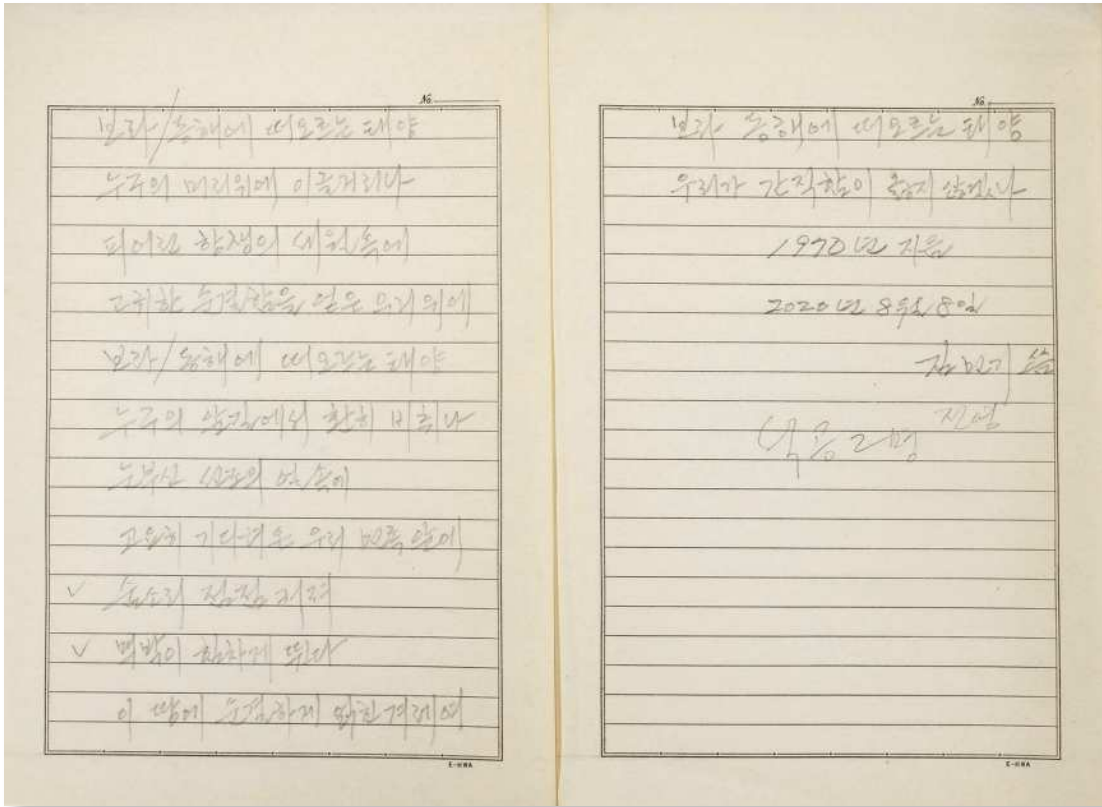 No.
보라/동해에 떠오르는 태양
누구의 머리위에 이글거리나
피어린 항쟁의 세월 속에
고귀한 순결함을 얻은 우리 위에
보라/동해에 떠오르는 태양
누구의 앞길에서 환히 비추나
눈부신 선조의 얼 속에
고요히 기다려온 우리 민족 앞에
✓ 숨소리 점점 커져
✓ 맥박이 힘차게 뛴다
이 땅에 순결하게 겨레여
E-HWA
No.
보라 동해에 떠오르는 태양
우리가 간직함이 옳지 않겠나
1970년 지음
2020년 8월 8일
김민기 씀
E-HWA